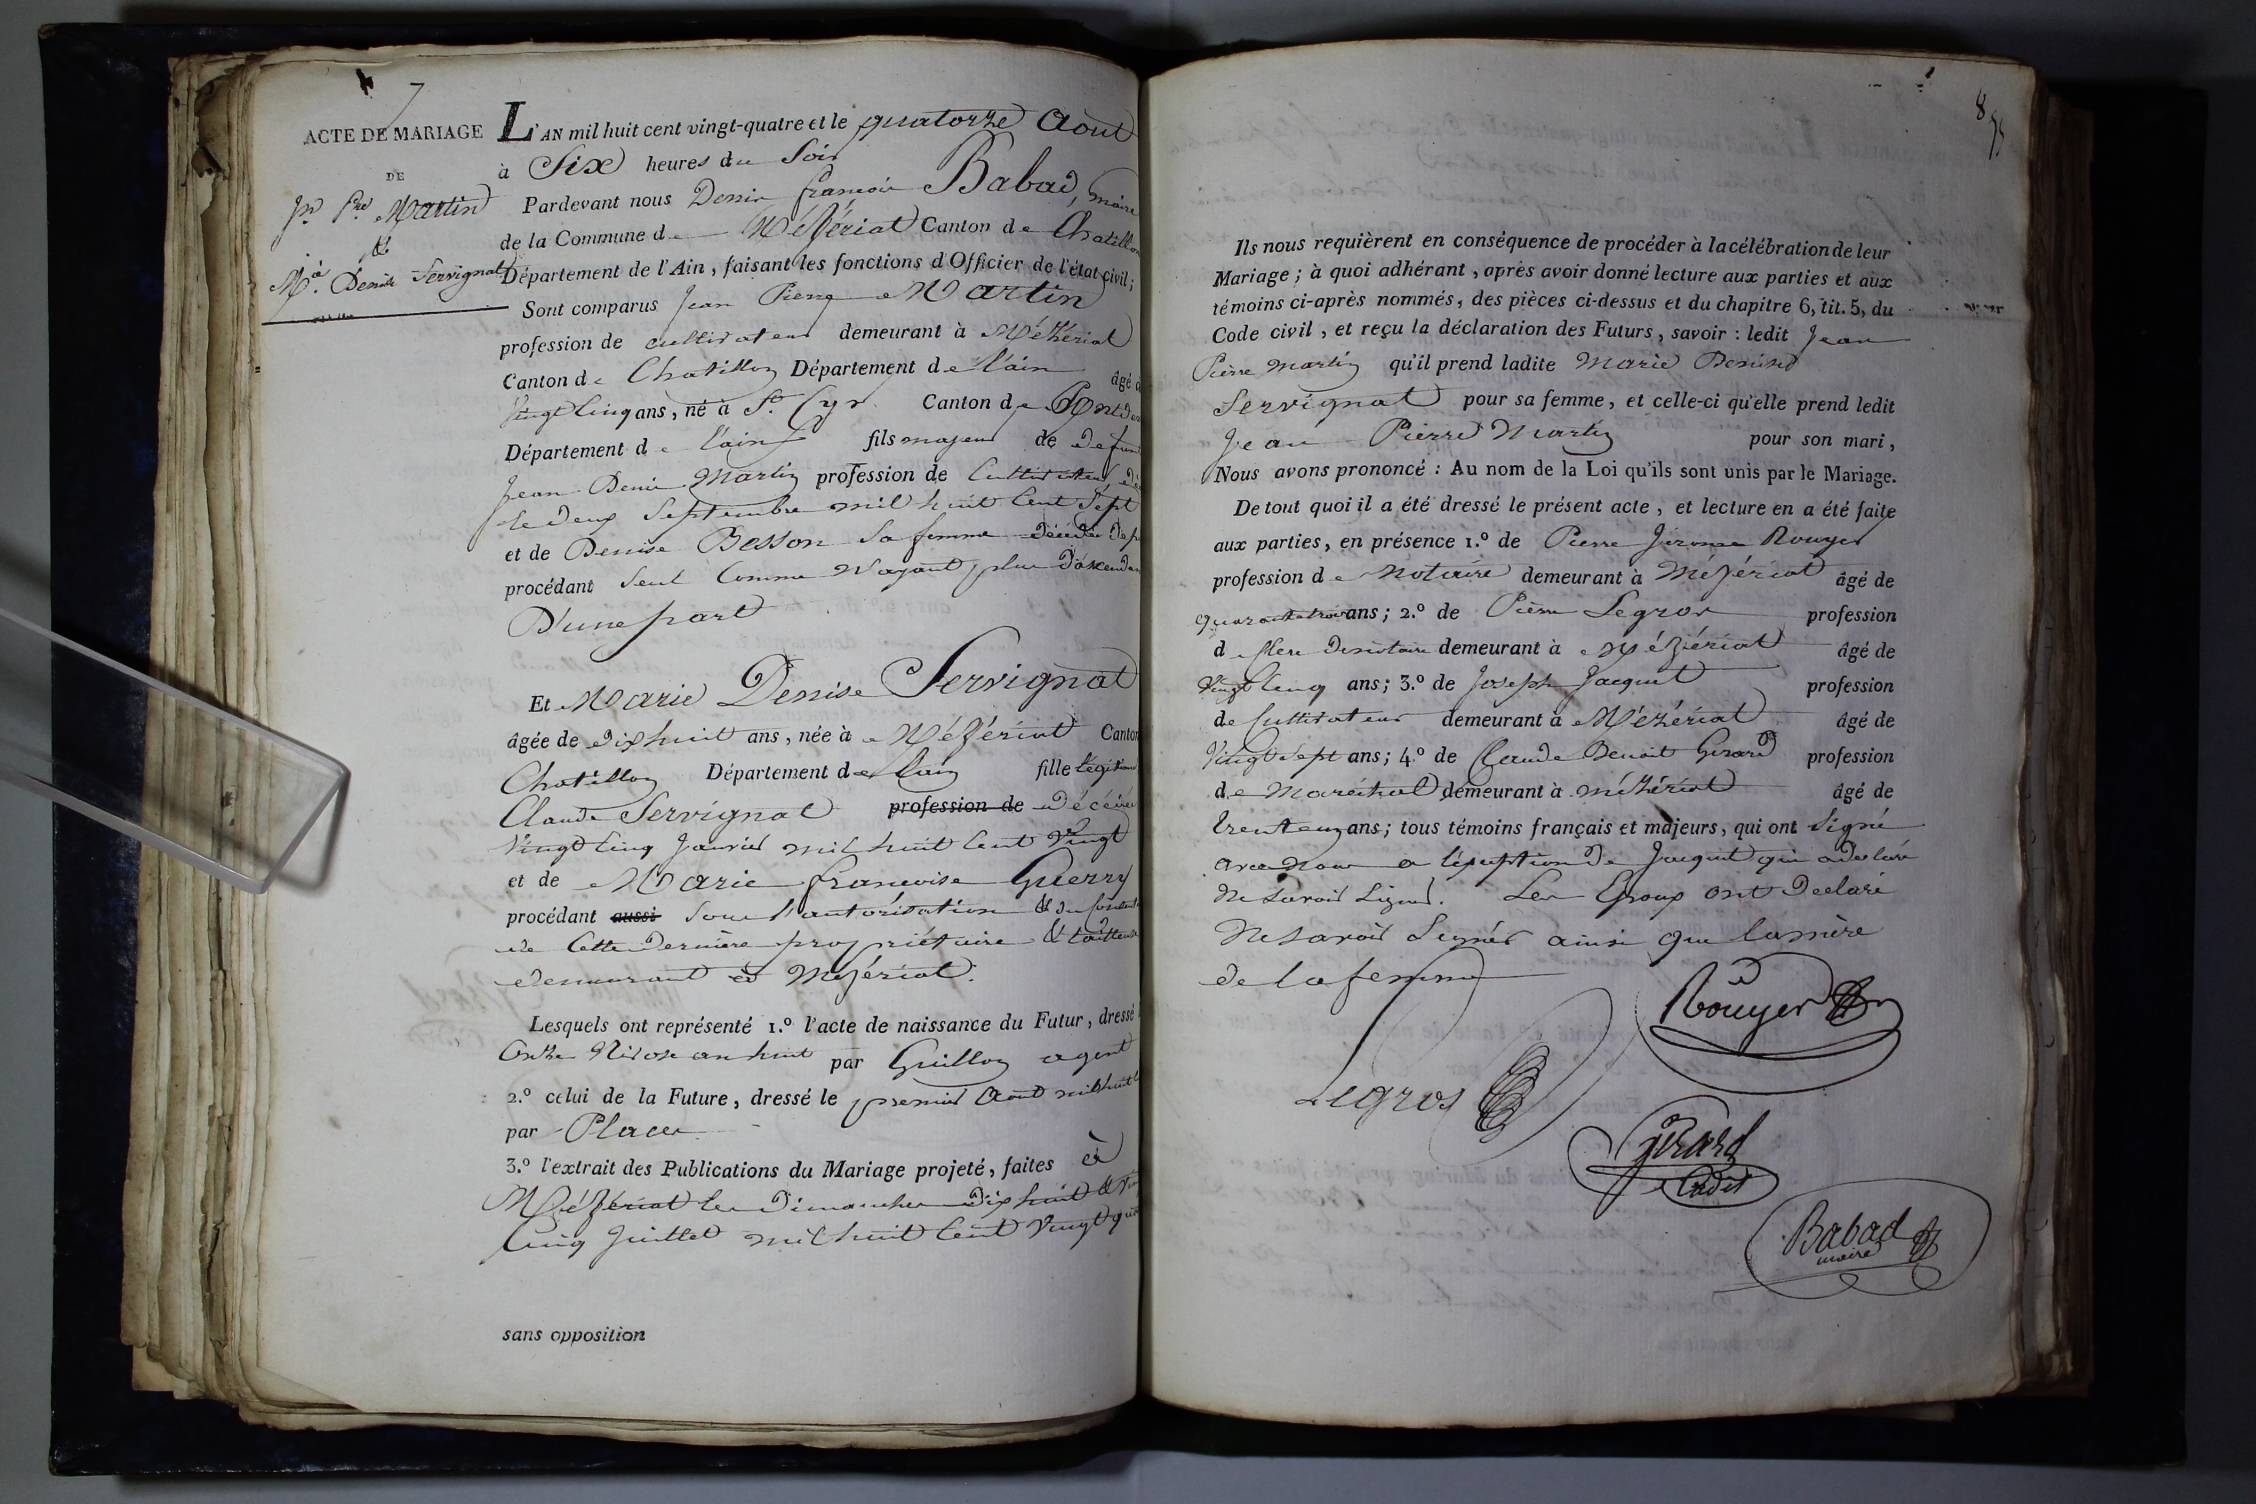 7
ACTE DE MARIAGE
DE
Jn Pre Martin
&
Mie Denise Servignat
L'AN mil huit cent vingt-quatre et le quatorze aout
à Six heures du Soir
Pardevant nous Denis françois Babad, maire
de la Commune de Mézériat Canton de Chatillon
Département de l'Ain, faisant les fonctions d'Officier de l'état civil;
Sont comparus Jean Pierre Martin
profession de cultivateur demeurant à Mézériat
Canton de Chatillon Département de l'ain âgé d
Vingt Cinq ans, né à St. Cyr Canton de Pontde
Département de l'ain fils majeur de defunt
Jean Denis Martin profession de Cultivateur, dé
le deux Septembre mil huit Cent Sept
et de Denise Besson Sa femme décédée dep
procédant Seul Comme N'ayant plus d'ascendan
D'une part
Et Marie Denise Servignat
âgée de dix huit ans, née à Mézériat Canton
Chatillon Département de l'ain fille légitime
Claude Servignat profession de décédé
Vingt Cinq Janvier mil huit Cent Vingt
et de Marie françoise Guerry
procédant aussi Sous l'autorisation & du Consent
de Cette Dernière propriétaire & tailleuse
demeurant à Mézériat.
Lesquels ont représenté 1.º l'acte de naissance du Futur, dressé
Onze Nivose an huit par Guillon agent
2.º celui de la Future, dressé le premier Aout mil huit c
par Place
3.º l'extrait des Publications du Mariage projeté, faites à
Mézériat les Dimanches Dix huit & Vingt
Cinq Juillet mil huit Cent Vingt qua
sans opposition
8
Ils nous requièrent en conséquence de procéder à la célébration de leur
Mariage; à quoi adhérant, après avoir donné lecture aux parties et aux
témoins ci-après nommés, des pièces ci-dessus et du chapitre 6, tit. 5, du
Code civil, et reçu la déclaration des Futurs, savoir: ledit Jean
Pierre Martin qu'il prend ladite Marie Denise
Servignat pour sa femme, et celle-ci qu'elle prend ledit
Jean Pierre Martin pour son mari,
Nous avons prononcé: Au nom de la Loi qu'ils sont unis par le Mariage.
De tout quoi il a été dressé le présent acte, et lecture en a été faite
aux parties, en présence 1.º de Pierre Jérome Rouyer
profession de Notaire demeurant à Mézériat âgé de
quarante trois ans; 2.º de Pierre Legros profession
de Clerc de notaire demeurant à Mézériat âgé de
Vingt Cinq ans; 3.º de Joseph Jacquet profession
de Cultivateur demeurant à Mézériat âgé de
Vingt Sept ans; 4.º de Claude Benoit Girard profession
de Maréchal demeurant à mézériat âgé de
trente un ans; tous témoins français et majeurs, qui ont Signé
avec nous a l'exeption de Jacquet qui a déclaré
ne Savoir Signer. Les Epoux ont Déclaré
ne Savoir Signer ainsi que la mère
de la femme
Rouyer
Legros
Girard
Cadet
Babad
maire